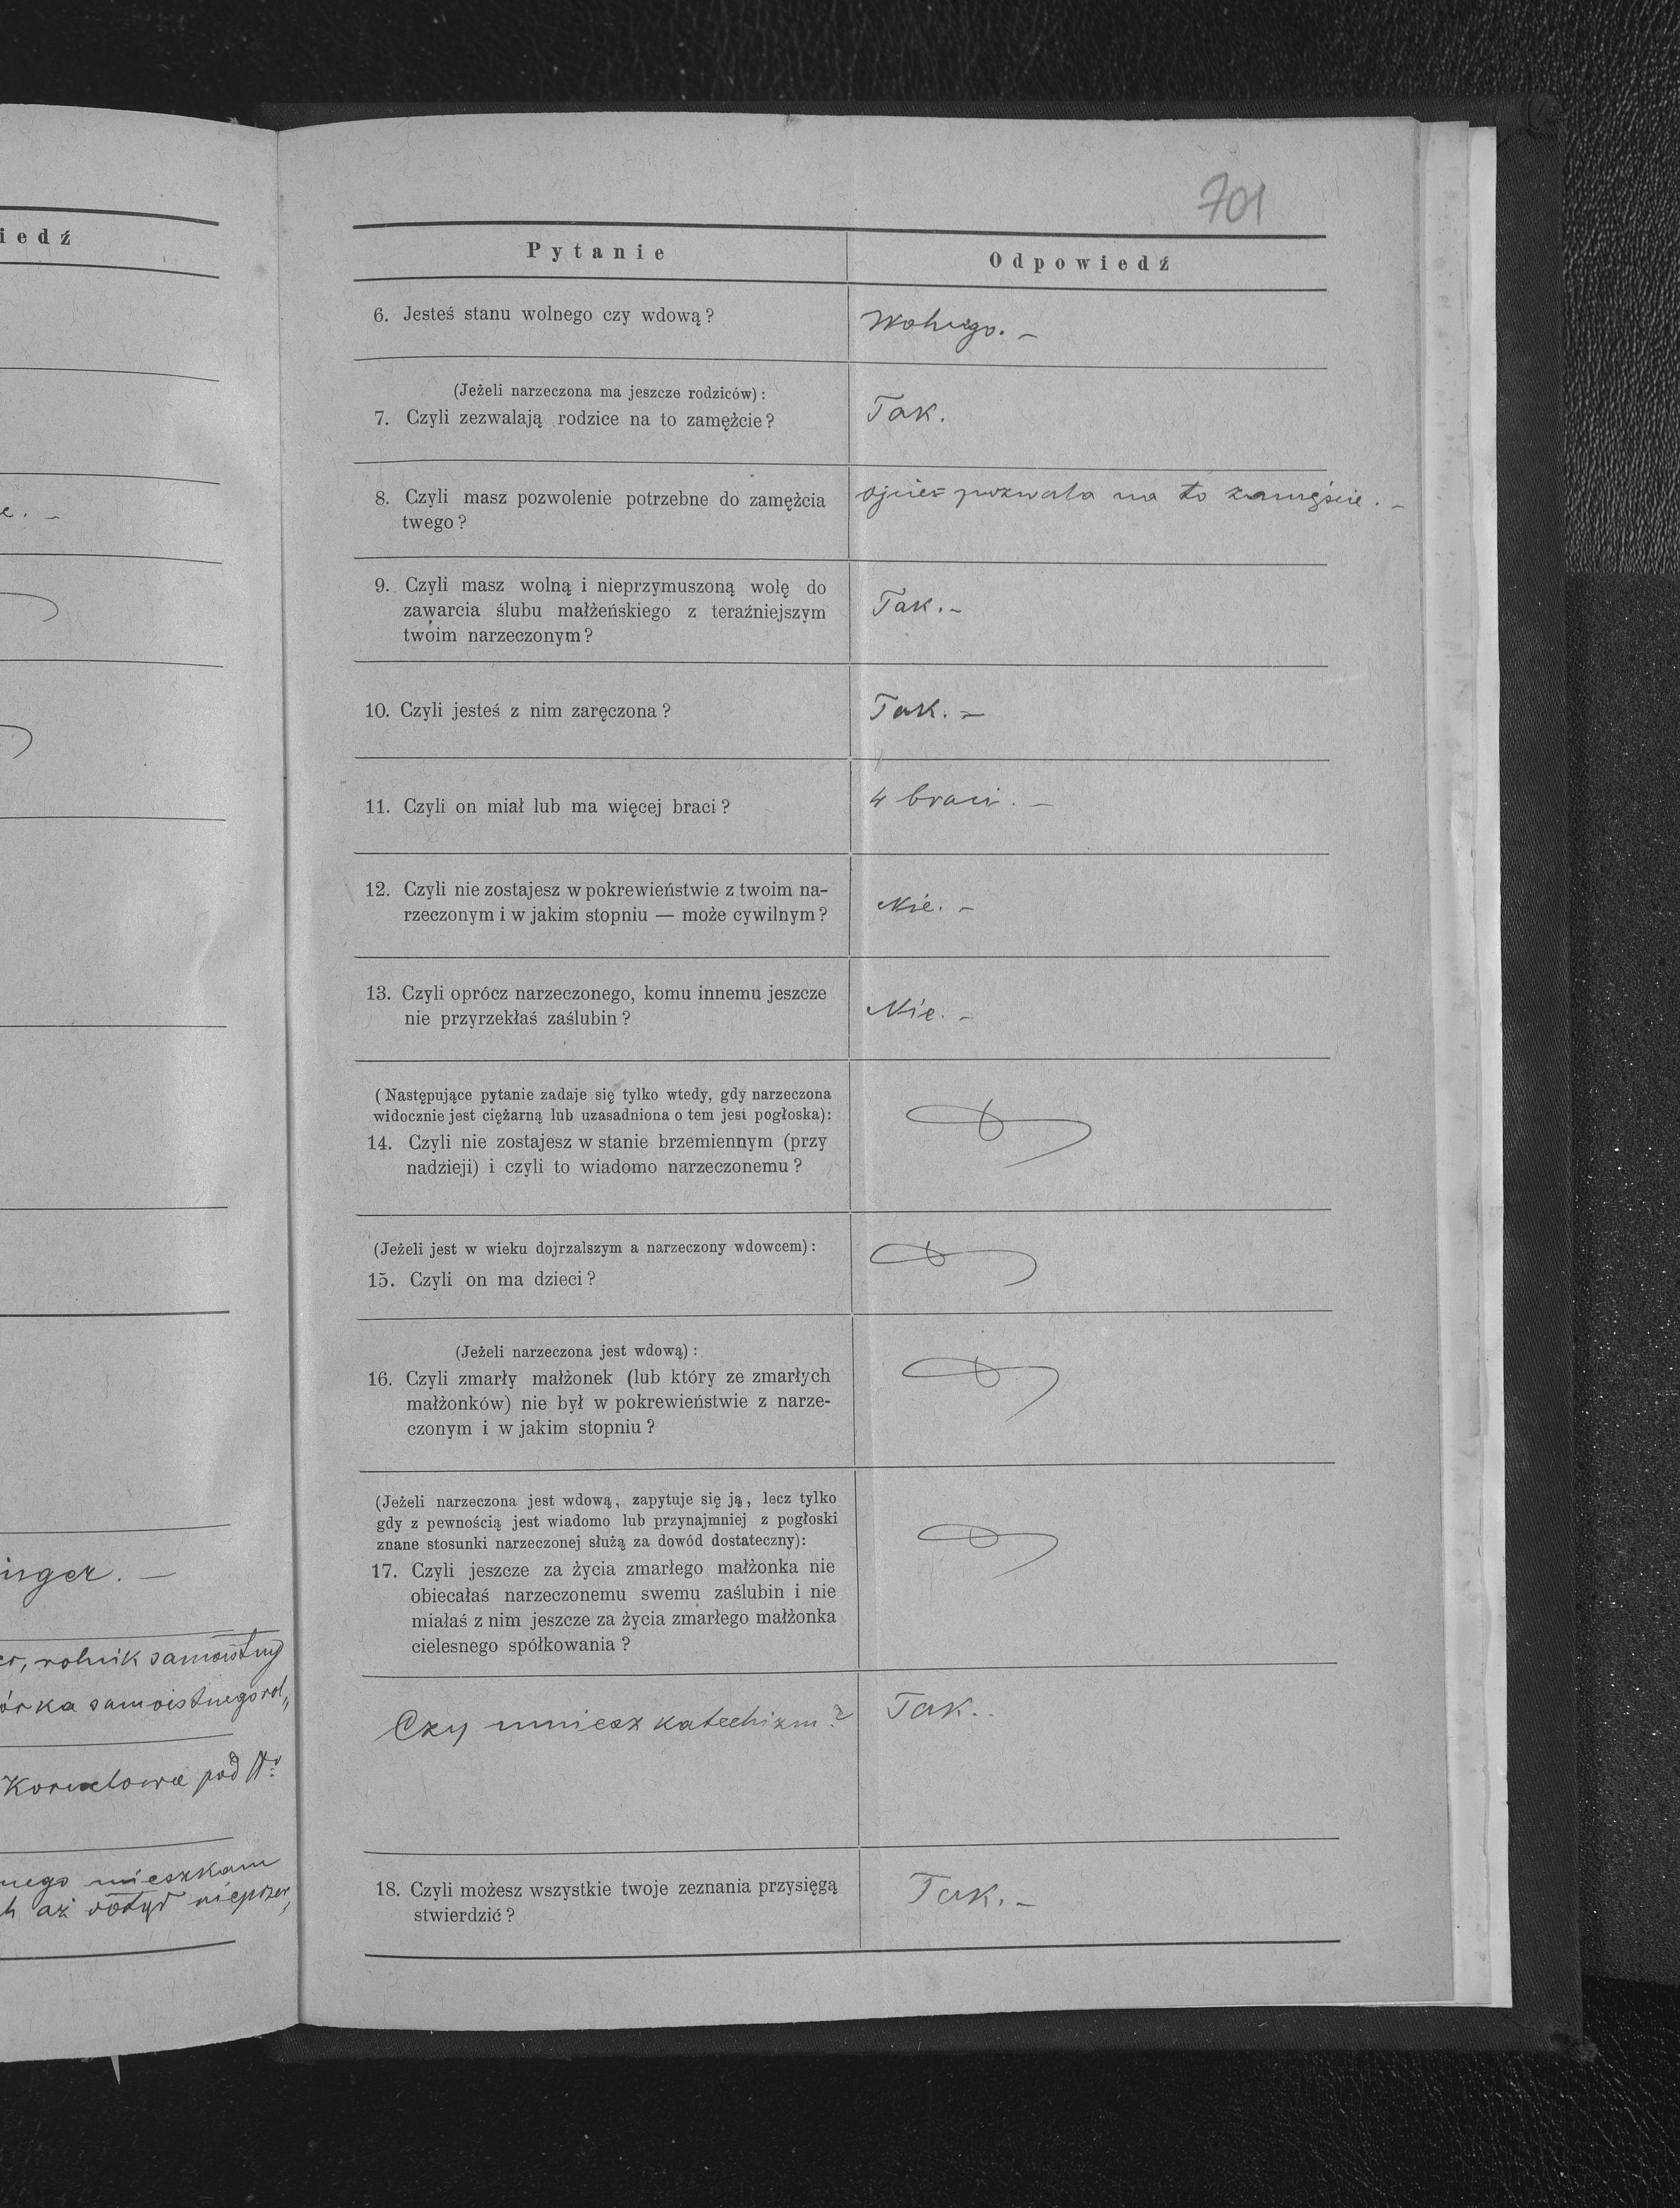 iedź
e. -
inger. -
er, rolnik samoistny
órka samoistnego rol„
Kornelowie pod Nr
nego mieszkam
h aż dotąd nieprzer„
701
Pytanie
Odpowiedź
6. Jesteś stanu wolnego czy wdową?
Wolnego. -
(Jeżeli narzeczona ma jeszcze rodziców):
7. Czyli zezwalają rodzice na to zamężcie?
Tak.
8. Czyli masz pozwolenie potrzebne do zamężcia
twego?
Ojciec pozwala na to zamęście. -
9. Czyli masz wolną i nieprzymuszoną wolę do
zawarcia ślubu małżeńskiego z teraźniejszym
twoim narzeczonym?
Tak. -
10. Czyli jesteś z nim zaręczona?
Tak. -
11. Czyli on miał lub ma więcej braci?
4 braci. -
12. Czyli nie zostajesz w pokrewieństwie z twoim na-
rzeczonym i w jakim stopniu — może cywilnym?
Nie. -
13. Czyli oprócz narzeczonego, komu innemu jeszcze
nie przyrzekłaś zaślubin?
Nie. -
(Następujące pytanie zadaje się tylko wtedy, gdy narzeczona
widocznie jest ciężarną lub uzasadniona o tem jest pogłoska):
14. Czyli nie zostajesz w stanie brzemiennym (przy
nadzieji) i czyli to wiadomo narzeczonemu?
(Jeżeli jest w wieku dojrzalszym a narzeczony wdowcem):
15. Czyli on ma dzieci?
(Jeżeli narzeczona jest wdową):
16. Czyli zmarły małżonek (lub który ze zmarłych
małżonków) nie był w pokrewieństwie z narze-
czonym i w jakim stopniu?
(Jeżeli narzeczona jest wdową, zapytuje się ją, lecz tylko
gdy z pewnością jest wiadomo lub przynajmniej z pogłoski
znane stosunki narzeczonej służą za dowód dostateczny):
17. Czyli jeszcze za życia zmarłego małżonka nie
obiecałaś narzeczonemu swemu zaślubin i nie
miałaś z nim jeszcze za życia zmarłego małżonka
cielesnego spółkowania?
Czy umiesz katechizm?
Tak..
18. Czyli możesz wszystkie twoje zeznania przysięgą
stwierdzić?
Tak. -